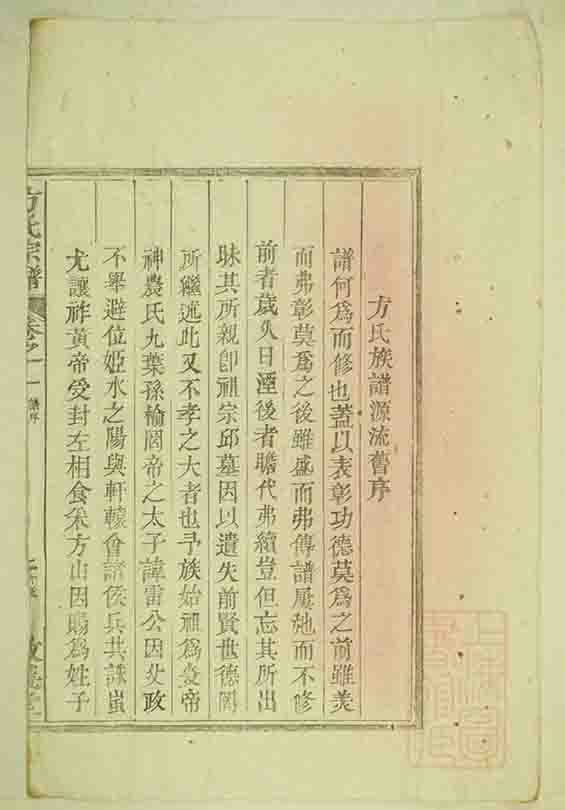 方氏族譜源流舊序
譜何爲而修也蓋以表彰功德莫爲之前雖美
而弗彰莫爲之後雖盛而弗傳譜曠弛而不修
前者歲久日湮後者曠代弗續豈但忘其所出
昧其所親卽祖宗邱墓因以遺失前賢世德罔
所繼述此又不孝之大者也予族始祖爲炎帝
神農氏九葉孫榆罔帝之太子諱雷公因父政
不舉避位姬水之陽與軒轅會諸侯兵共誅蚩
尤讓祚黃帝受封左相食采方山因賜爲姓子
方氏宗譜
卷之一
譜序